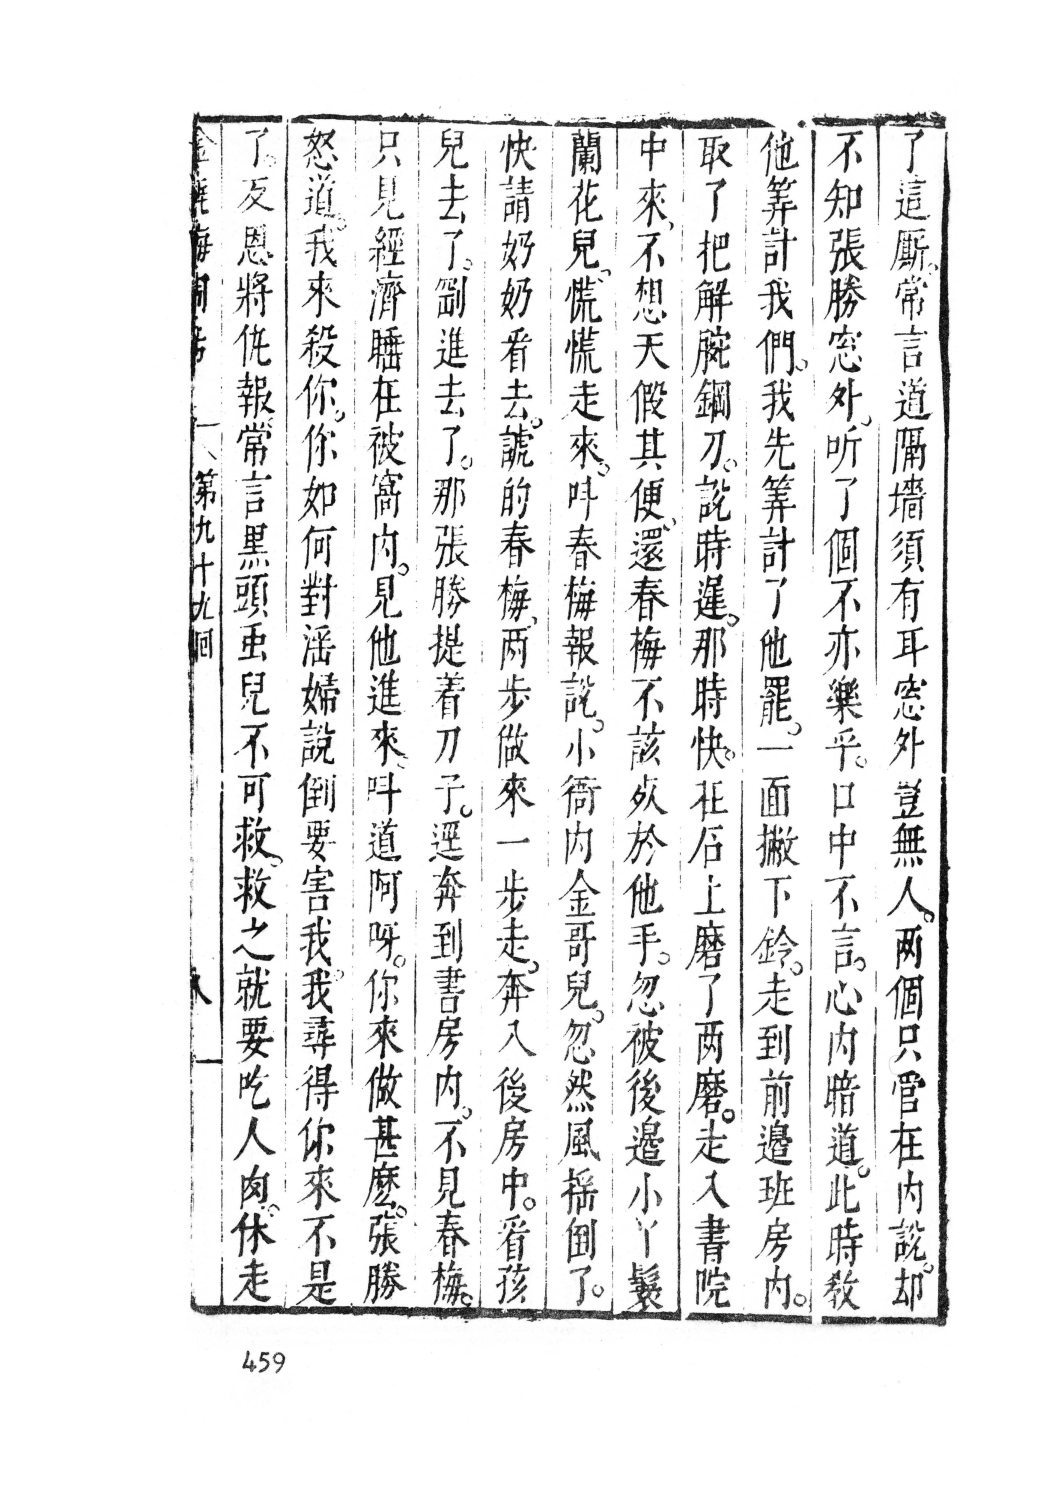 了這厮。常言道隔墻須有耳窓外豈無人。两個只管在内說。却
不知張勝窓外、听了個不亦樂乎。口中不言。心内暗道。此時教
他筭計我們。我先筭計了他罷。一面撇下鈴。走到前邉班房内。
取了把解腕鋼刀。說時遲。那時快。在石上磨了两磨。走入書院
中來、不想天假其便、還春梅不該死於他手。忽被後邉小丫鬟
蘭花兒、慌慌走來。叫春梅報說。小衙内金哥兒。忽然風揺倒了。
快請奶奶看去。諕的春梅、两步做來一步走。奔入後房中。看孩
兒去了。剛進去了。那張勝提着刀子。逕奔到書房内。不見春梅。
只見經濟睡在被窩内。見他進來、叫道阿呀。你來做甚麽。張勝
怒道。我來殺你。你如何對滛婦說倒要害我。我尋得你來不是
了。反恩將仇報、常言黒頭虫兒不可救。救之就要吃人肉。休走
金瓶梅詞話 第九十九回
一
459